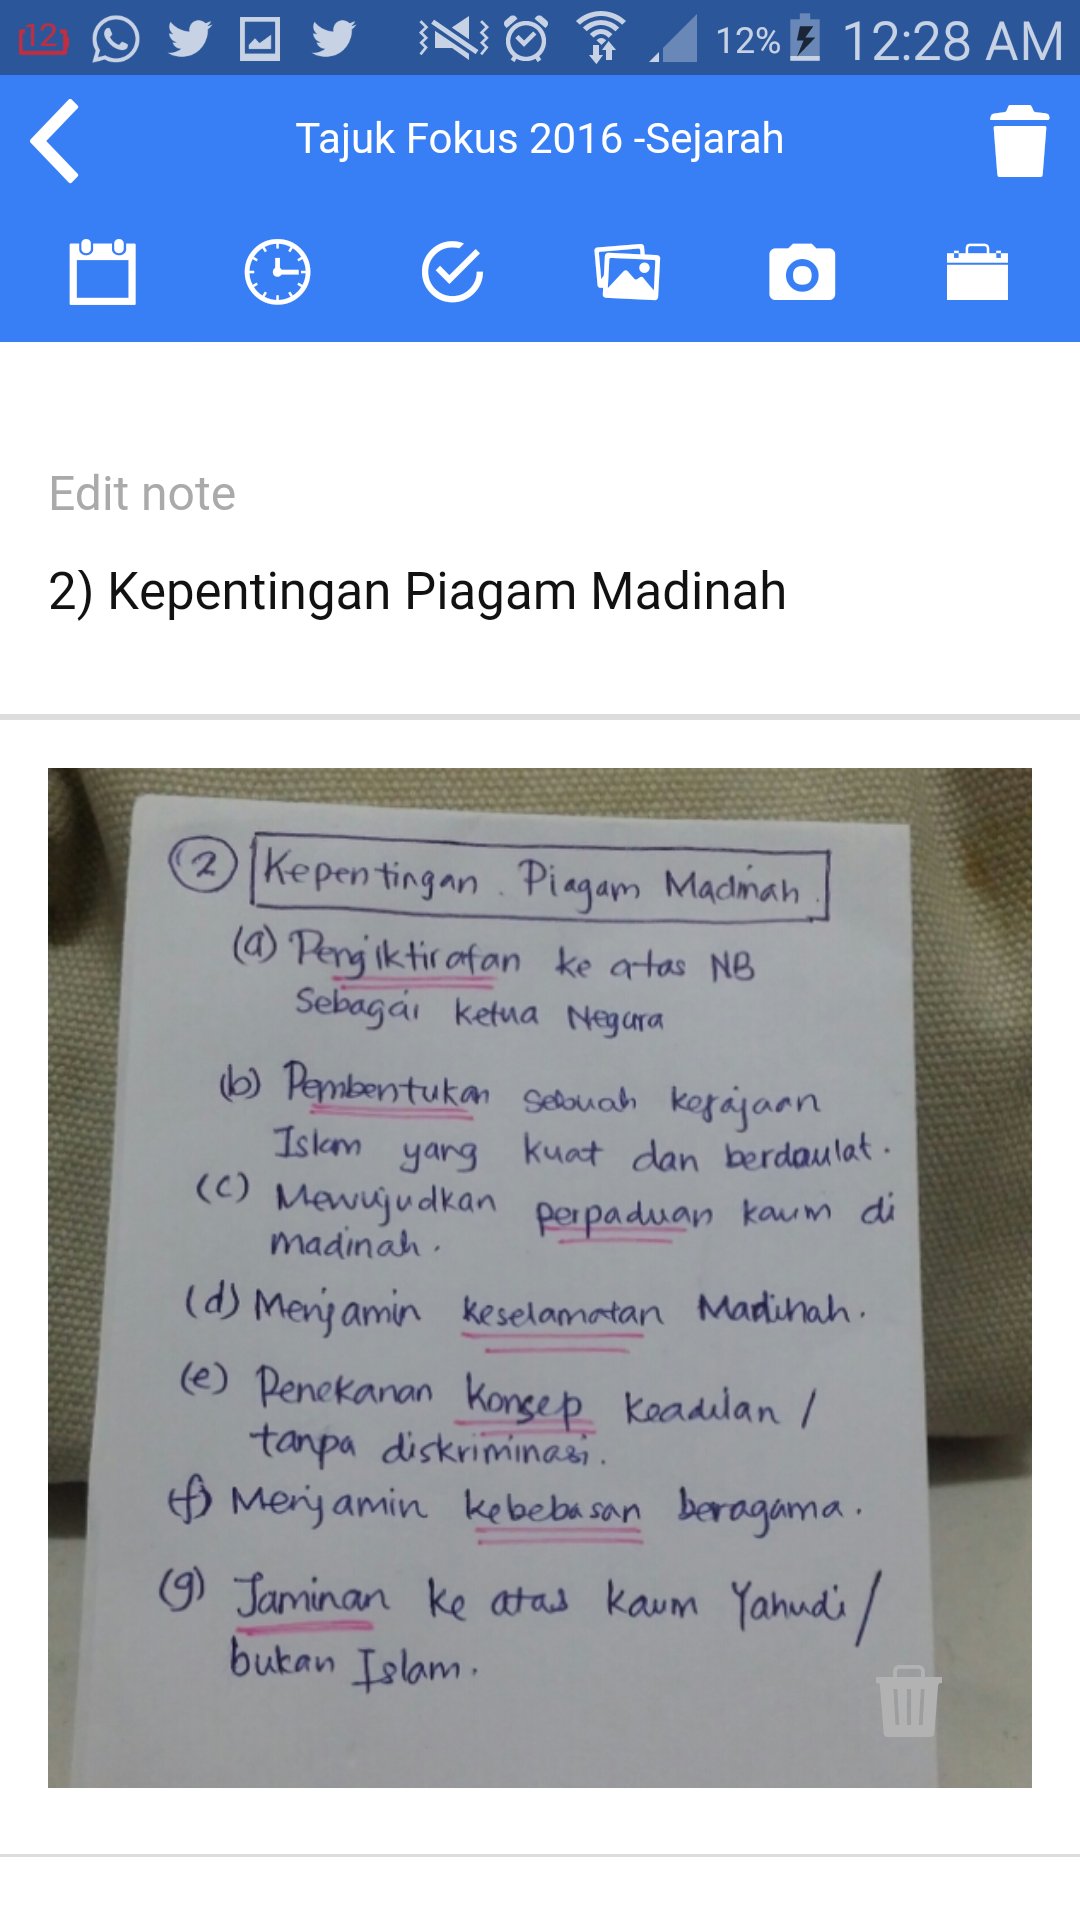 12
12%
12:28 AM
Tajuk Fokus 2016 -Sejarah
Edit note
2) Kepentingan Piagam Madinah
2 Kepentingan Piagam Madinah
(a) Pengiktirafan ke atas NB
Sebagai ketua Negara
(b) Pembentukan sebuah kerajaan
Islam yang kuat dan berdaulat.
(c) Mewujudkan perpaduan kaum di
madinah.
(d) Menjamin keselamatan Madinah.
(e) Penekanan konsep keadilan /
tanpa diskriminasi.
(f) Menjamin kebebasan beragama.
(g) Jaminan ke atas kaum Yahudi /
bukan Islam.